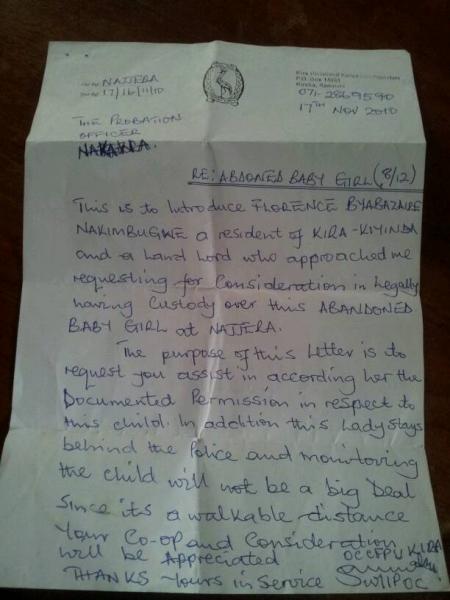 NAJJERA
17/16/11/10
P.O. Box
071-2869590
17TH NOV 2010
THE PROBATION
OFFICER
RE: ABDONED BABY GIRL (8/12)
This is to Introduce FLORENCE BYABAZAIRE
NAKIMBUGWE a resident of KIRA-KIYINDA
and a Land Lord who approached me
requesting for Consideration in Legally
having Custody over this ABANDONED
BABY GIRL at NAJJERA.
The purpose of this Letter is to
request you assist in according her the
Documented Permission in respect to
this child. In addition this Lady stays
behind the Police and monitoring
the child will not be a big Deal
Since its a walkable distance
Your Co-op and Consideration
will be Appreciated
OC CFPU KIRA
THANKS Yours in Service